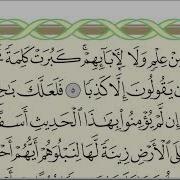 مِنْ عِلْمٍ وَلَا لِآبَائِهِمْ ۚ كَبُرَتْ كَلِمَةً
يَقُولُونَ إِلَّا كَذِبًا ٥ فَلَعَلَّكَ
إِن لَّمْ يُؤْمِنُوا بِهَٰذَا الْحَدِيثِ أَسَفًا
عَلَى الْأَرْضِ زِينَةً لَّهَا لِنَبْلُوَهُمْ أَيُّهُمْ